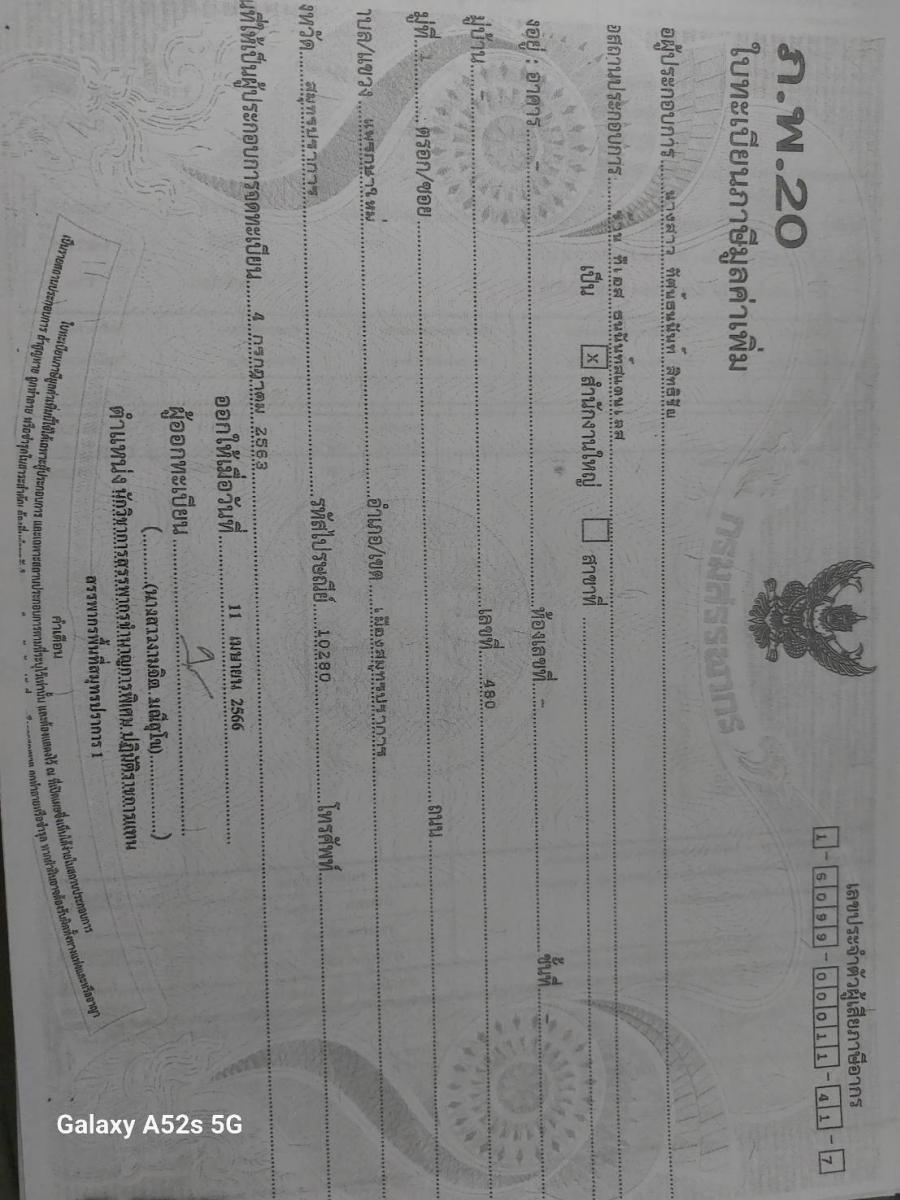 ภ.พ.20
ใบทะเบียนภาษีมูลค่าเพิ่ม
กรมสรรพากร
เลขประจำตัวผู้เสียภาษีอากร
1-6099-00011-41-7
อผู้ประกอบการ นางสาว สิทธิ
อสถานประกอบการ
เป็น x สำนักงานใหญ่ สาขาที่
งอยู่ : อาคาร - ห้องเลขที่ - ชั้นที่ -
มู่บ้าน - เลขที่ 480
มู่ที่ 1 ตรอก/ซอย ถนน
าบล/แขวง แพรกษาใหม่ อำเภอ/เขต เมืองสมุทรปราการ
งหวัด สมุทรปราการ รหัสไปรษณีย์ 10280 โทรศัพท์
นที่ให้เป็นผู้ประกอบการจดทะเบียน 4 กรกฎาคม 2563
ออกให้เมื่อวันที่ 11 เมษายน 2566
ผู้ออกทะเบียน
(นางสาวงามจิต มณีสุโข)
ตำแหน่ง นักวิชาการสรรพากรชำนาญการพิเศษ ปฏิบัติราชการแทน
สรรพากรพื้นที่สมุทรปราการ 1
คำเตือน
ใบทะเบียนภาษีมูลค่าเพิ่มนี้ใช้ได้เฉพาะผู้ประกอบการ และเฉพาะสถานประกอบการตามที่ระบุไว้เท่านั้น และต้องแสดงไว้ ณ ที่เปิดเผยซึ่งเห็นได้ง่ายในสถานประกอบการ
Galaxy A52s 5G